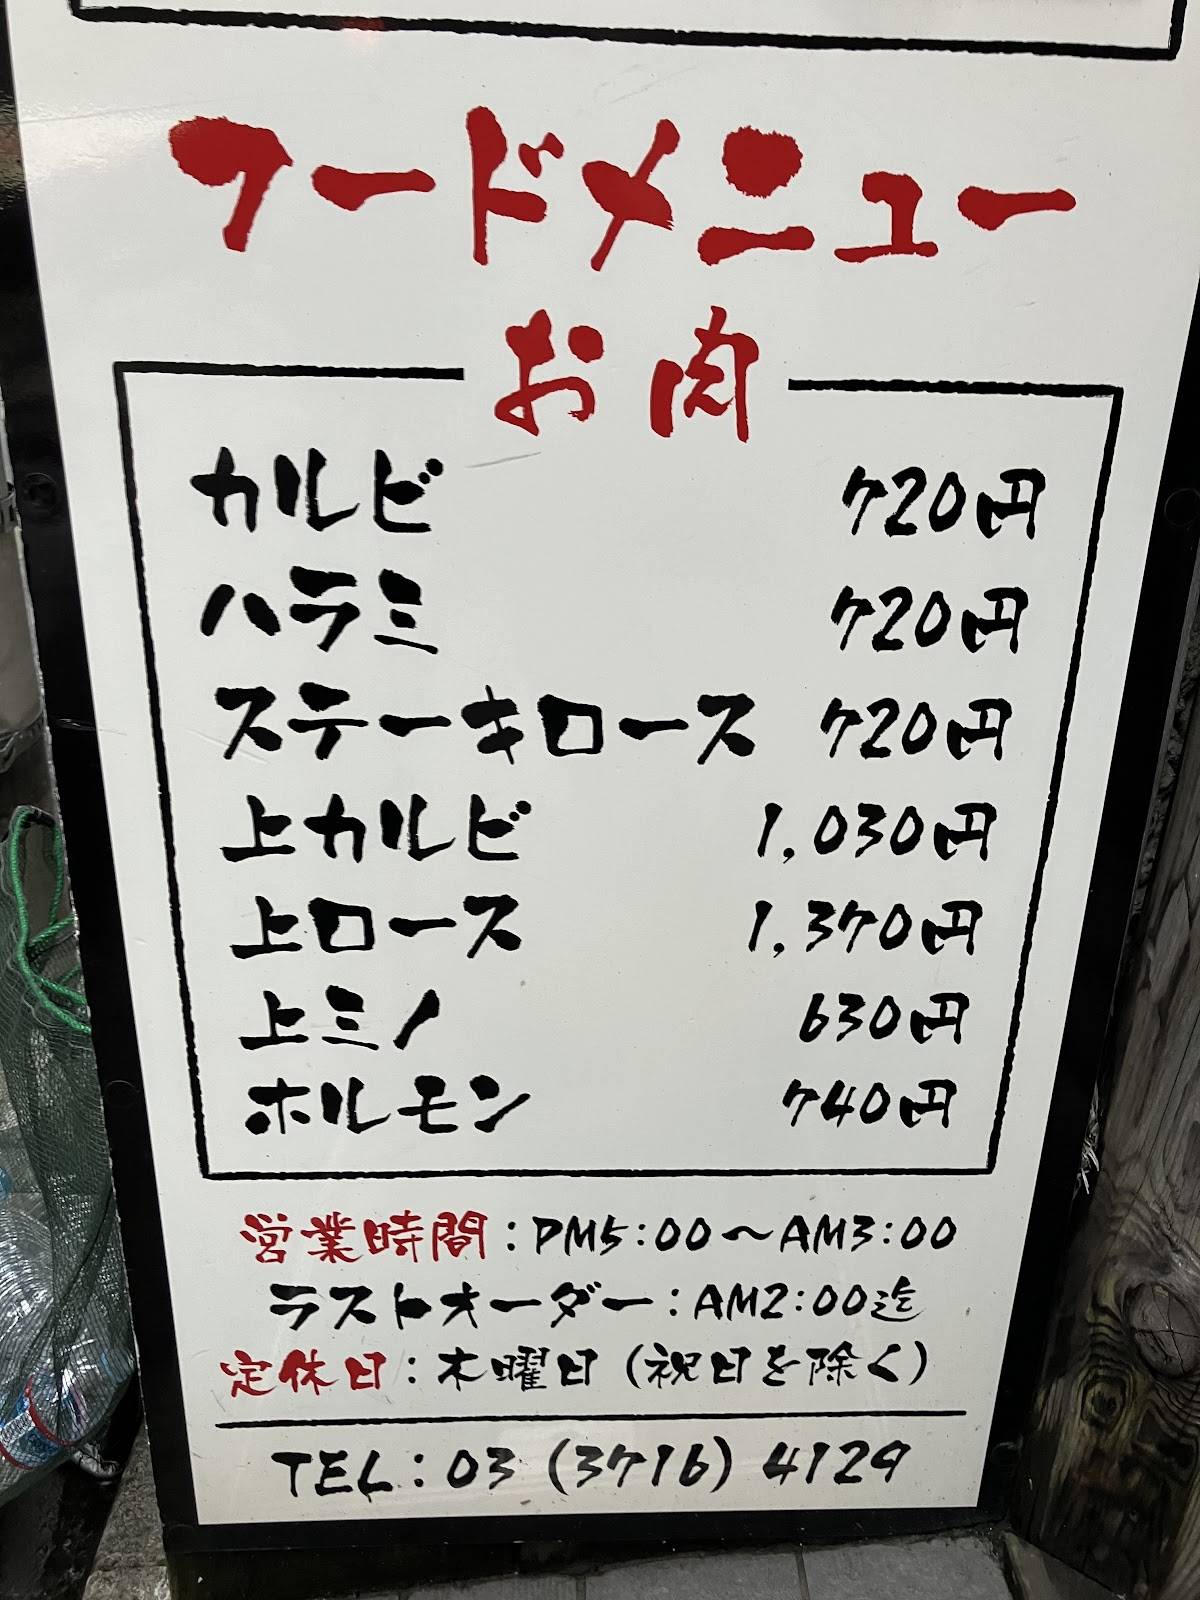 フードメニュー
お肉
カルビ 720円
ハラミ 720円
ステーキロース 720円
上カルビ 1,030円
上ロース 1,370円
上ミノ 630円
ホルモン 740円
営業時間:PM5:00～AM3:00
ラストオーダー:AM2:00迄
定休日:木曜日(祝日を除く)
TEL:03(3716)4129